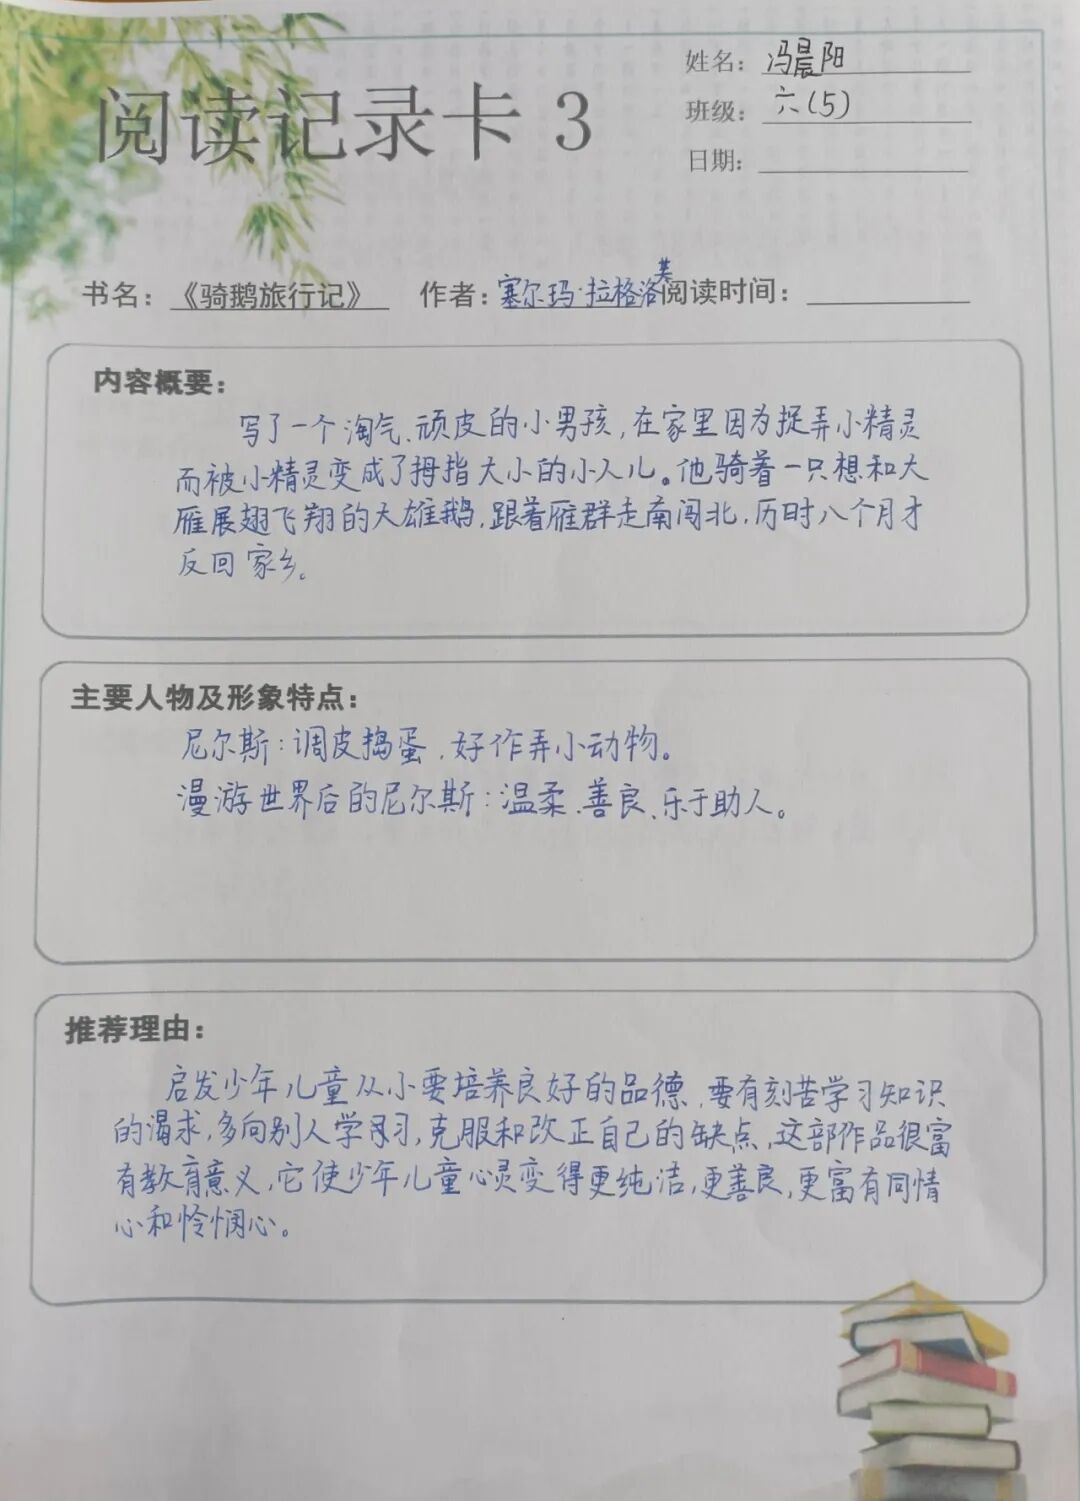 阅读记录卡 3
姓名：冯晨阳
班级：六(5)
日期：
书名：《骑鹅旅行记》 作者：塞尔玛·拉格洛芙 阅读时间：
内容概要：
写了一个淘气、顽皮的小男孩，在家里因为捉弄小精灵
而被小精灵变成了拇指大小的小人儿。他骑着一只想和大
雁展翅飞翔的大雄鹅，跟着雁群走南闯北，历时八个月才
反回家乡。
主要人物及形象特点：
尼尔斯：调皮捣蛋，好作弄小动物。
漫游世界后的尼尔斯：温柔、善良、乐于助人。
推荐理由：
启发少年儿童从小要培养良好的品德，要有刻苦学习知识
的渴求，多向别人学习，克服和改正自己的缺点，这部作品很富
有教育意义，它使少年儿童心灵变得更纯洁，更善良，更富有同情
心和怜悯心。